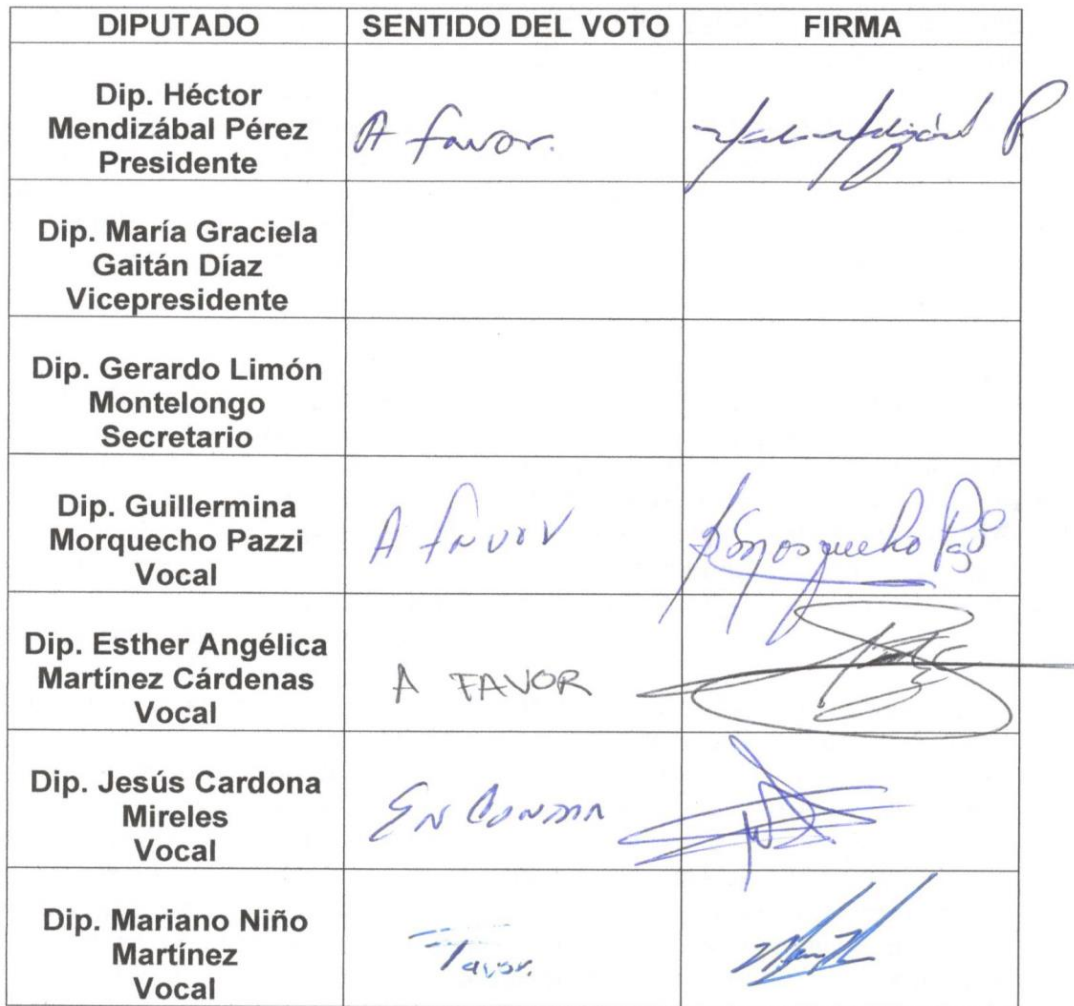 DIPUTADO SENTIDO DEL VOTO FIRMA
Dip. Héctor
Mendizábal Pérez
Presidente
A favor.
Dip. María Graciela
Gaitán Díaz
Vicepresidente
Dip. Gerardo Limón
Montelongo
Secretario
Dip. Guillermina
Morquecho Pazzi
Vocal
A favor
Dip. Esther Angélica
Martínez Cárdenas
Vocal
A FAVOR
Dip. Jesús Cardona
Mireles
Vocal
EN CONTRA
Dip. Mariano Niño
Martínez
Vocal
Favor.